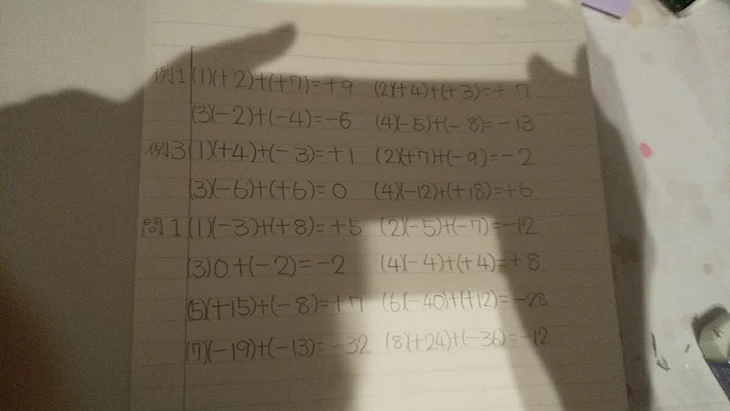 例1 (1)(+2)+(+7)=+9 (2)(+4)+(+3)=+7
(3)(-2)+(-4)=-6 (4)(-5)+(-8)=-13
例3 (1)(+4)+(-3)=+1 (2)(+7)+(-9)=-2
(3)(-6)+(+6)=0 (4)(-12)+(+18)=+6
問1 (1)(-3)+(+8)=+5 (2)(-5)+(-7)=-12
(3)0+(-2)=-2 (4)(-4)+(+4)=+8
(5)(+15)+(-8)=+7 (6)(-40)+(+12)=-28
(7)(-19)+(-13)=-32 (8)(+24)+(-36)=-12